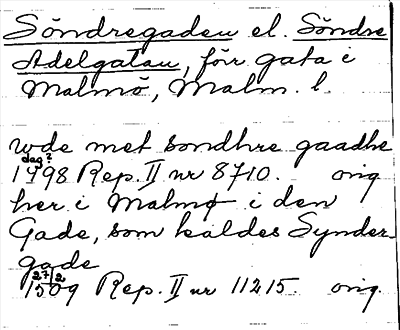 Söndregaden el. Söndre
Adelgatan, förr gata i
Malmö, Malm. l.
wde met sondhre gaadhe
dag?
1498 Rep. II nr 8710. orig
her i Malmø i den
Gade, som kaldes Synder-
gade
27/2
1509 Rep. II nr 11215. orig.